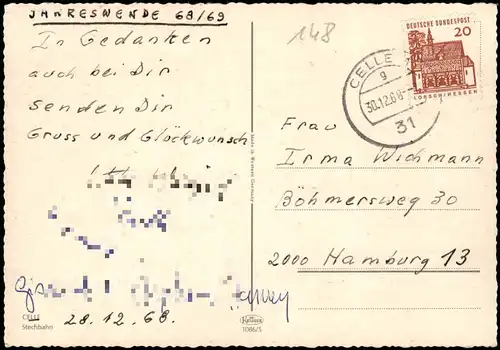 JAHRESWENDE 68/69
In Gedanken
auch bei Dir
senden Dir
Gruss und Glückwunsch
28.12.68.
CELLE
Stechbahn
1086/5
148
DEUTSCHE BUNDESPOST
20
LORSCH/HESSEN
CELLE
g
30.12.68
31
Frau
Irma Wichmann
Böhmersweg 30
2000 Hamburg 13